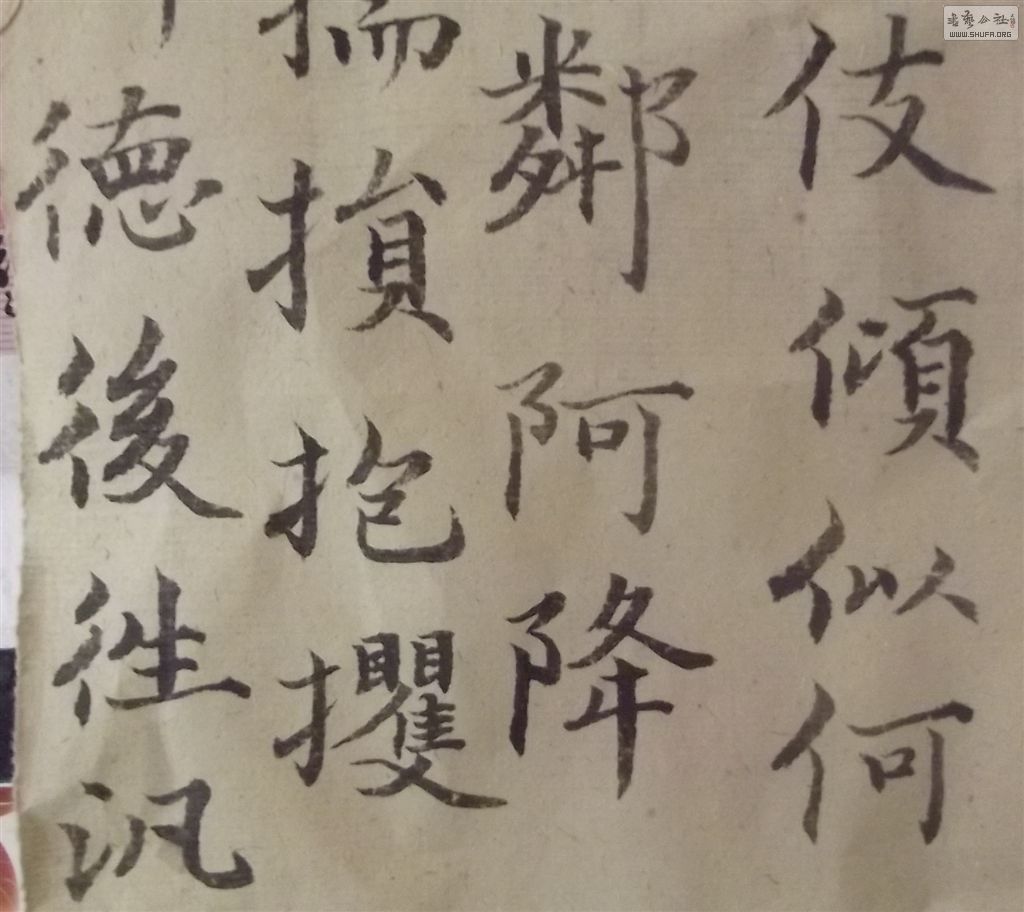 伎傾似何
鄰阿降
揣損抱攫
德後往汎
書藝公社
WWW.SHUFA.ORG